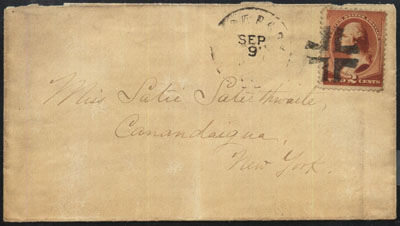 SEP
9
2 CENTS
Miss Sutie Saterthwaite,
Canandaigua,
New York.